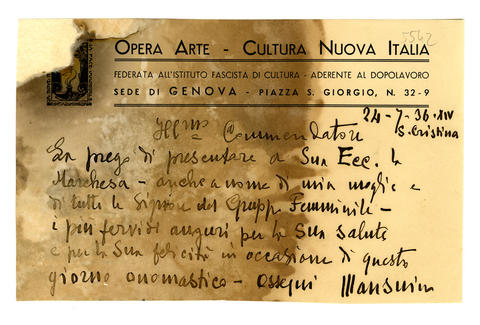 5542
OPERA ARTE - CULTURA NUOVA ITALIA
FEDERATA ALL'ISTITUTO FASCISTA DI CULTURA - ADERENTE AL DOPOLAVORO
SEDE DI GENOVA - PIAZZA S. GIORGIO, N. 32-9
24-7-36-XIV
S. Cristina
Ill.mo Commendatore
La prego di presentare a Sua Ecc. la
Marchesa - anche a nome di mia moglie e
di tutte le Signore del Gruppo Femminile -
i più fervidi auguri per la Sua salute
e per la Sua felicità in occasione di questo
giorno onomastico - ossequi